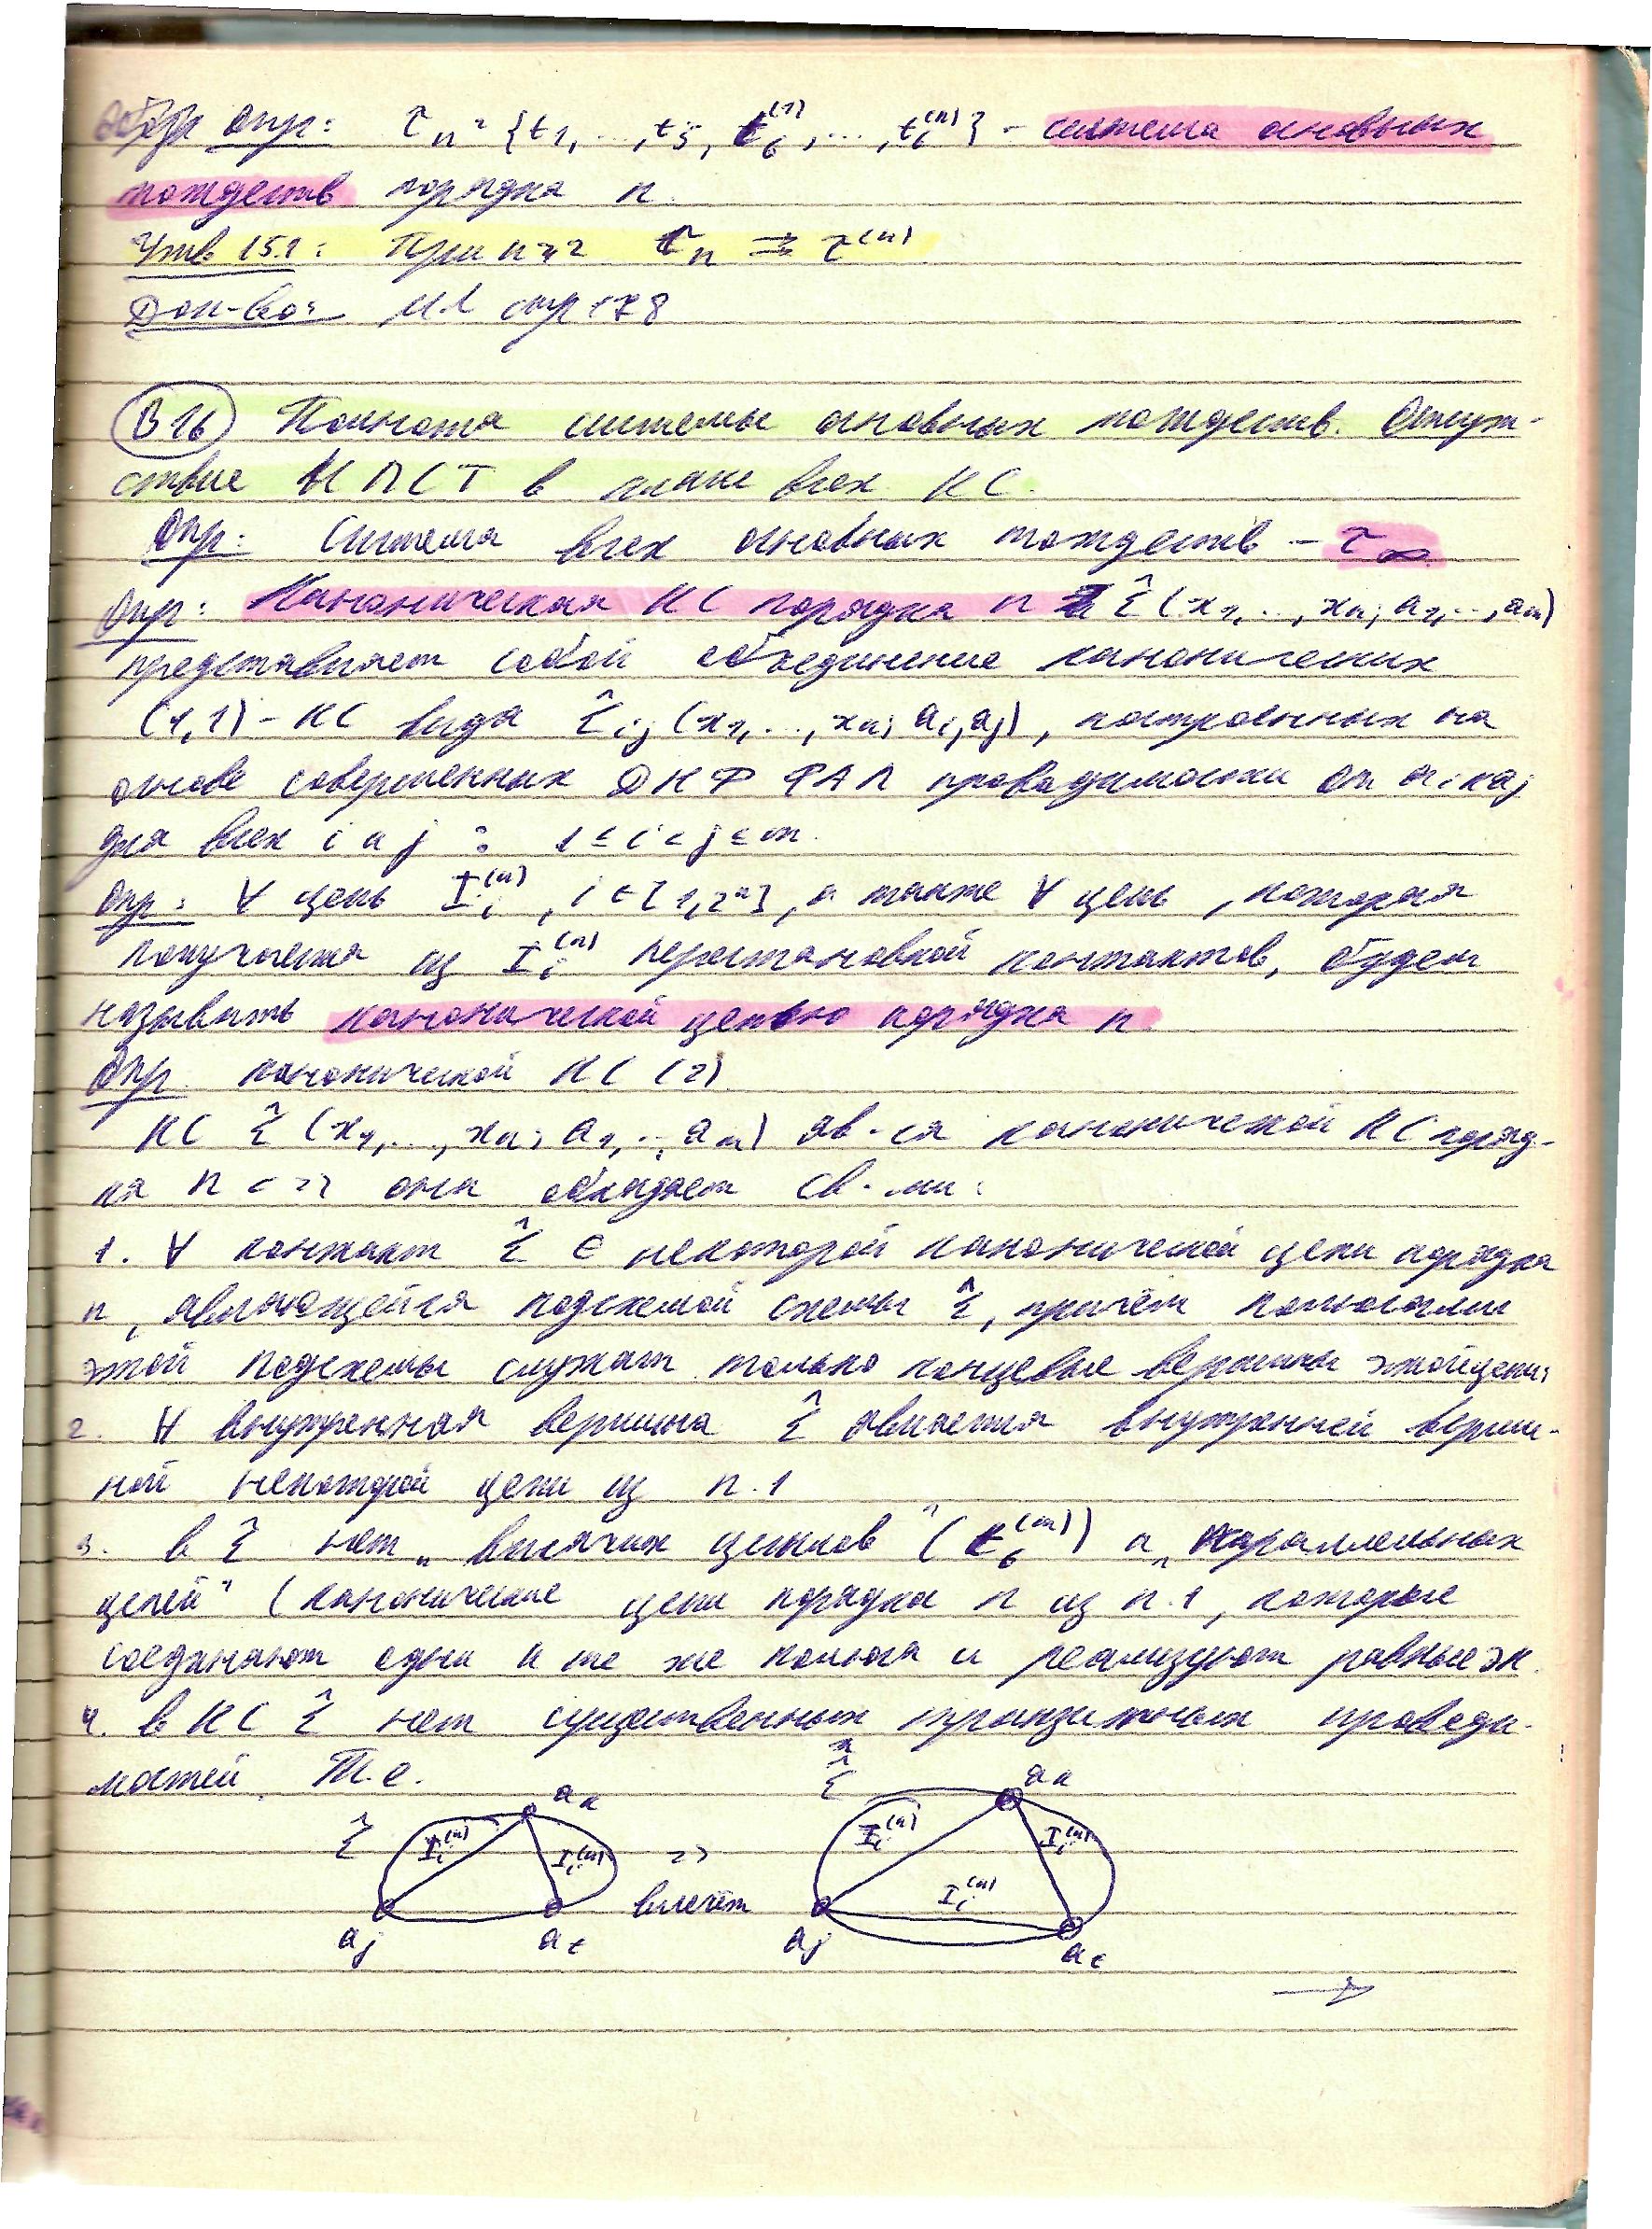 Опр: τn = {t1, ..., t5, t6^(1), ..., t6^(n)} - система основных
тождеств порядка n.
Утв 15.1: При n ≥ 2 τn ⇒ τ^(n)
Док-во: М1 стр 178
В16 Полнота системы основных тождеств. Отсут-
ствие КПСТ в классе всех КС.
Опр: Система всех основных тождеств - τ∞
Опр: Каноническая КС порядка n Σ̂(x1, .., xn; a1, .., am)
представляет собой объединение канонических
(1,1) - КС вида Σ̂ij (x1, ..., xn; ai, aj), построенных на
основе совершенных ДНФ ФАЛ проводимости от ai к aj
для всех i и j : 1 ≤ i < j ≤ m.
Опр: ∀ цепь Ii^(n), i ∈ [1, 2^n], а также ∀ цепь, которая
получается из Ii^(n) перестановкой контактов, будем
называть канонической цепью порядка n.
Опр. канонической КС (2)
КС Σ̂ (x1, ..., xn; a1, .., am) яв-ся канонической КС поряд-
ка n <=> она обладает св-ми:
1. ∀ контакт Σ̂ ∈ некоторой канонической цепи порядка
n, являющейся подсхемой схемы Σ̂, причём полюсами
этой подсхемы служат только концевые вершины этой цепи;
2. ∀ внутренняя вершина Σ̂ является внутренней верши-
ной некоторой цепи из п.1
3. в Σ̂ нет „висячих циклов" (t6^(m)) и „параллельных
цепей" (канонические цепи порядка n из п.1, которые
соединяют одни и те же полюса и реализуют равные эк.
4. в КС Σ̂ нет существенных транзитных проводи-
мостей. Т.е.
Σ̂ ak Ii^(n) Ii^(n) aj at
=> влечёт
Σ̂ ak Ii^(n) Ii^(n) Ii^(n) aj at